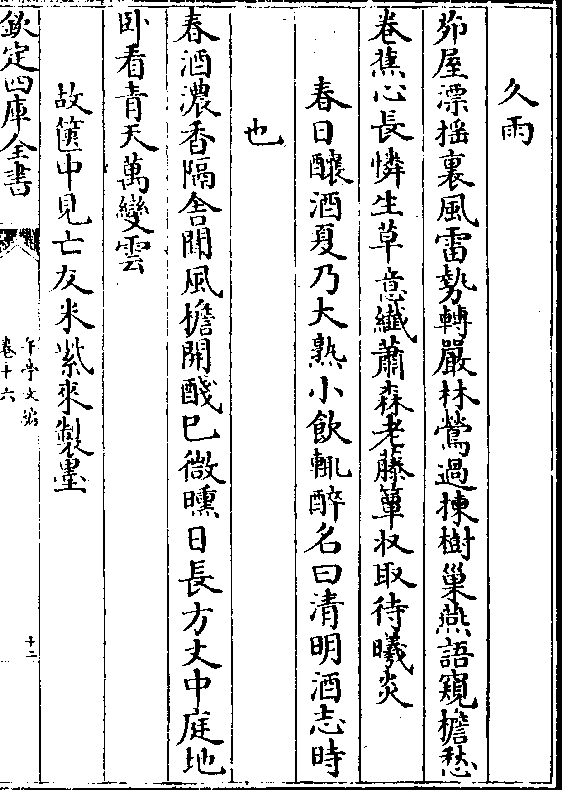 久雨
茆屋漂揺裏風雷勢轉嚴林鶯過揀樹巢燕語窺檐愁
卷蕉心長憐生草意纖蕭森老藤簟収取待曦炎
春日釀酒夏乃大熟小飲輒醉名曰清明酒志時
也
春酒濃香隔舎聞風檐開醆已微曛日長方丈中庭地
卧看青天萬變雲
故篋中見亡友米紫來製墨
欽定四庫全書
卷十六
十二